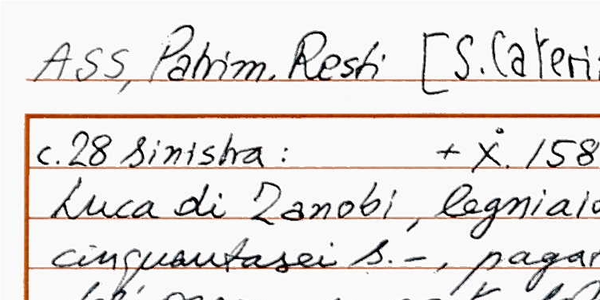 ASS, Patrim. Resti [S. Cateri
c. 28 sinistra: + X. 158
Luca di Zanobi, legniaio
cinquantasei s. -, pagar